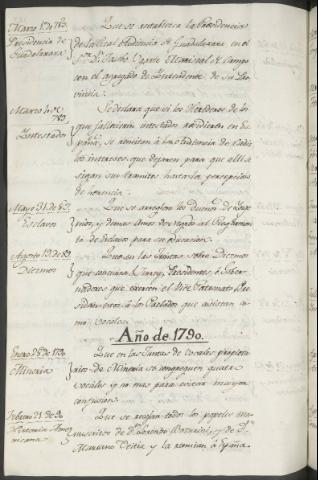 Marzo 17 de 789.
Presidencia de
Guadalaxara
Que se establezca la Presidencia
de la Real Audiencia de Guadalaxara en el
Sor. Dn. Jacobo Ugarte Mariscal de Campo
con el agregado de Intendente de su Pro
vincia.
Marzo
789
Intestados
Se declara que si los Herederos de los
que fallecieren intestados residieren en Es
paña, se remitan a la Audiencia de Cadiz
los intereses que dejaren para que alli si
gan sus tramites hasta la percepcion
de herencia.
Mayo 31 de 89.
Esclavos
Que se arreglen los dueños de
y demas Amos de negros al Reglamen
to de Esclavos para su
Agosto 13 de 89
Diezmos
Que en las Juntas sobre Diezmos
que Virrey, Presidentes, o Gober
nadores que exercen el Vice Patronato Pre
sidan a los Prelados que asistan co
mo vocales.
Año de 1790.
Enero 28 de 790.
Mineria
Que en las Juntas de vocales propieta
rios de Mineria se congreguen quatro
vocales y no mas para evitar mayor
confusion.
Febrero 21 de 90
Historia Ame
ricana
Que se recojan todos los papeles ma
nuscritos de Dn. Lorenzo Boturini, y de Dn.
Mariano Veitia y la remitan a España